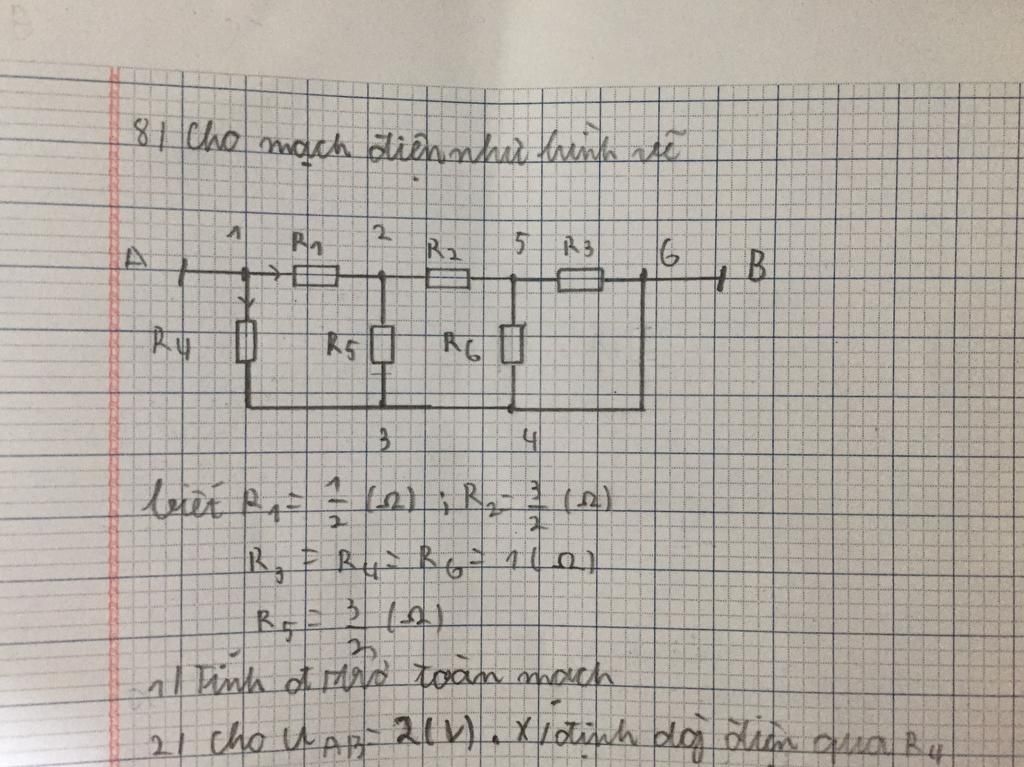 8) Cho mạch điện như hình vẽ
A 1 R1 2 R2 5 R3 6 B
R4 R5 R6
3 4
biết R1 = 1/2 (Ω) ; R2 = 3/2 (Ω)
R3 = R4 = R6 = 1 (Ω)
R5 = 3/2 (Ω)
1) Tính đ trở toàn mạch
2) Cho UAB = 2(V). X/định dòg điện qua R4